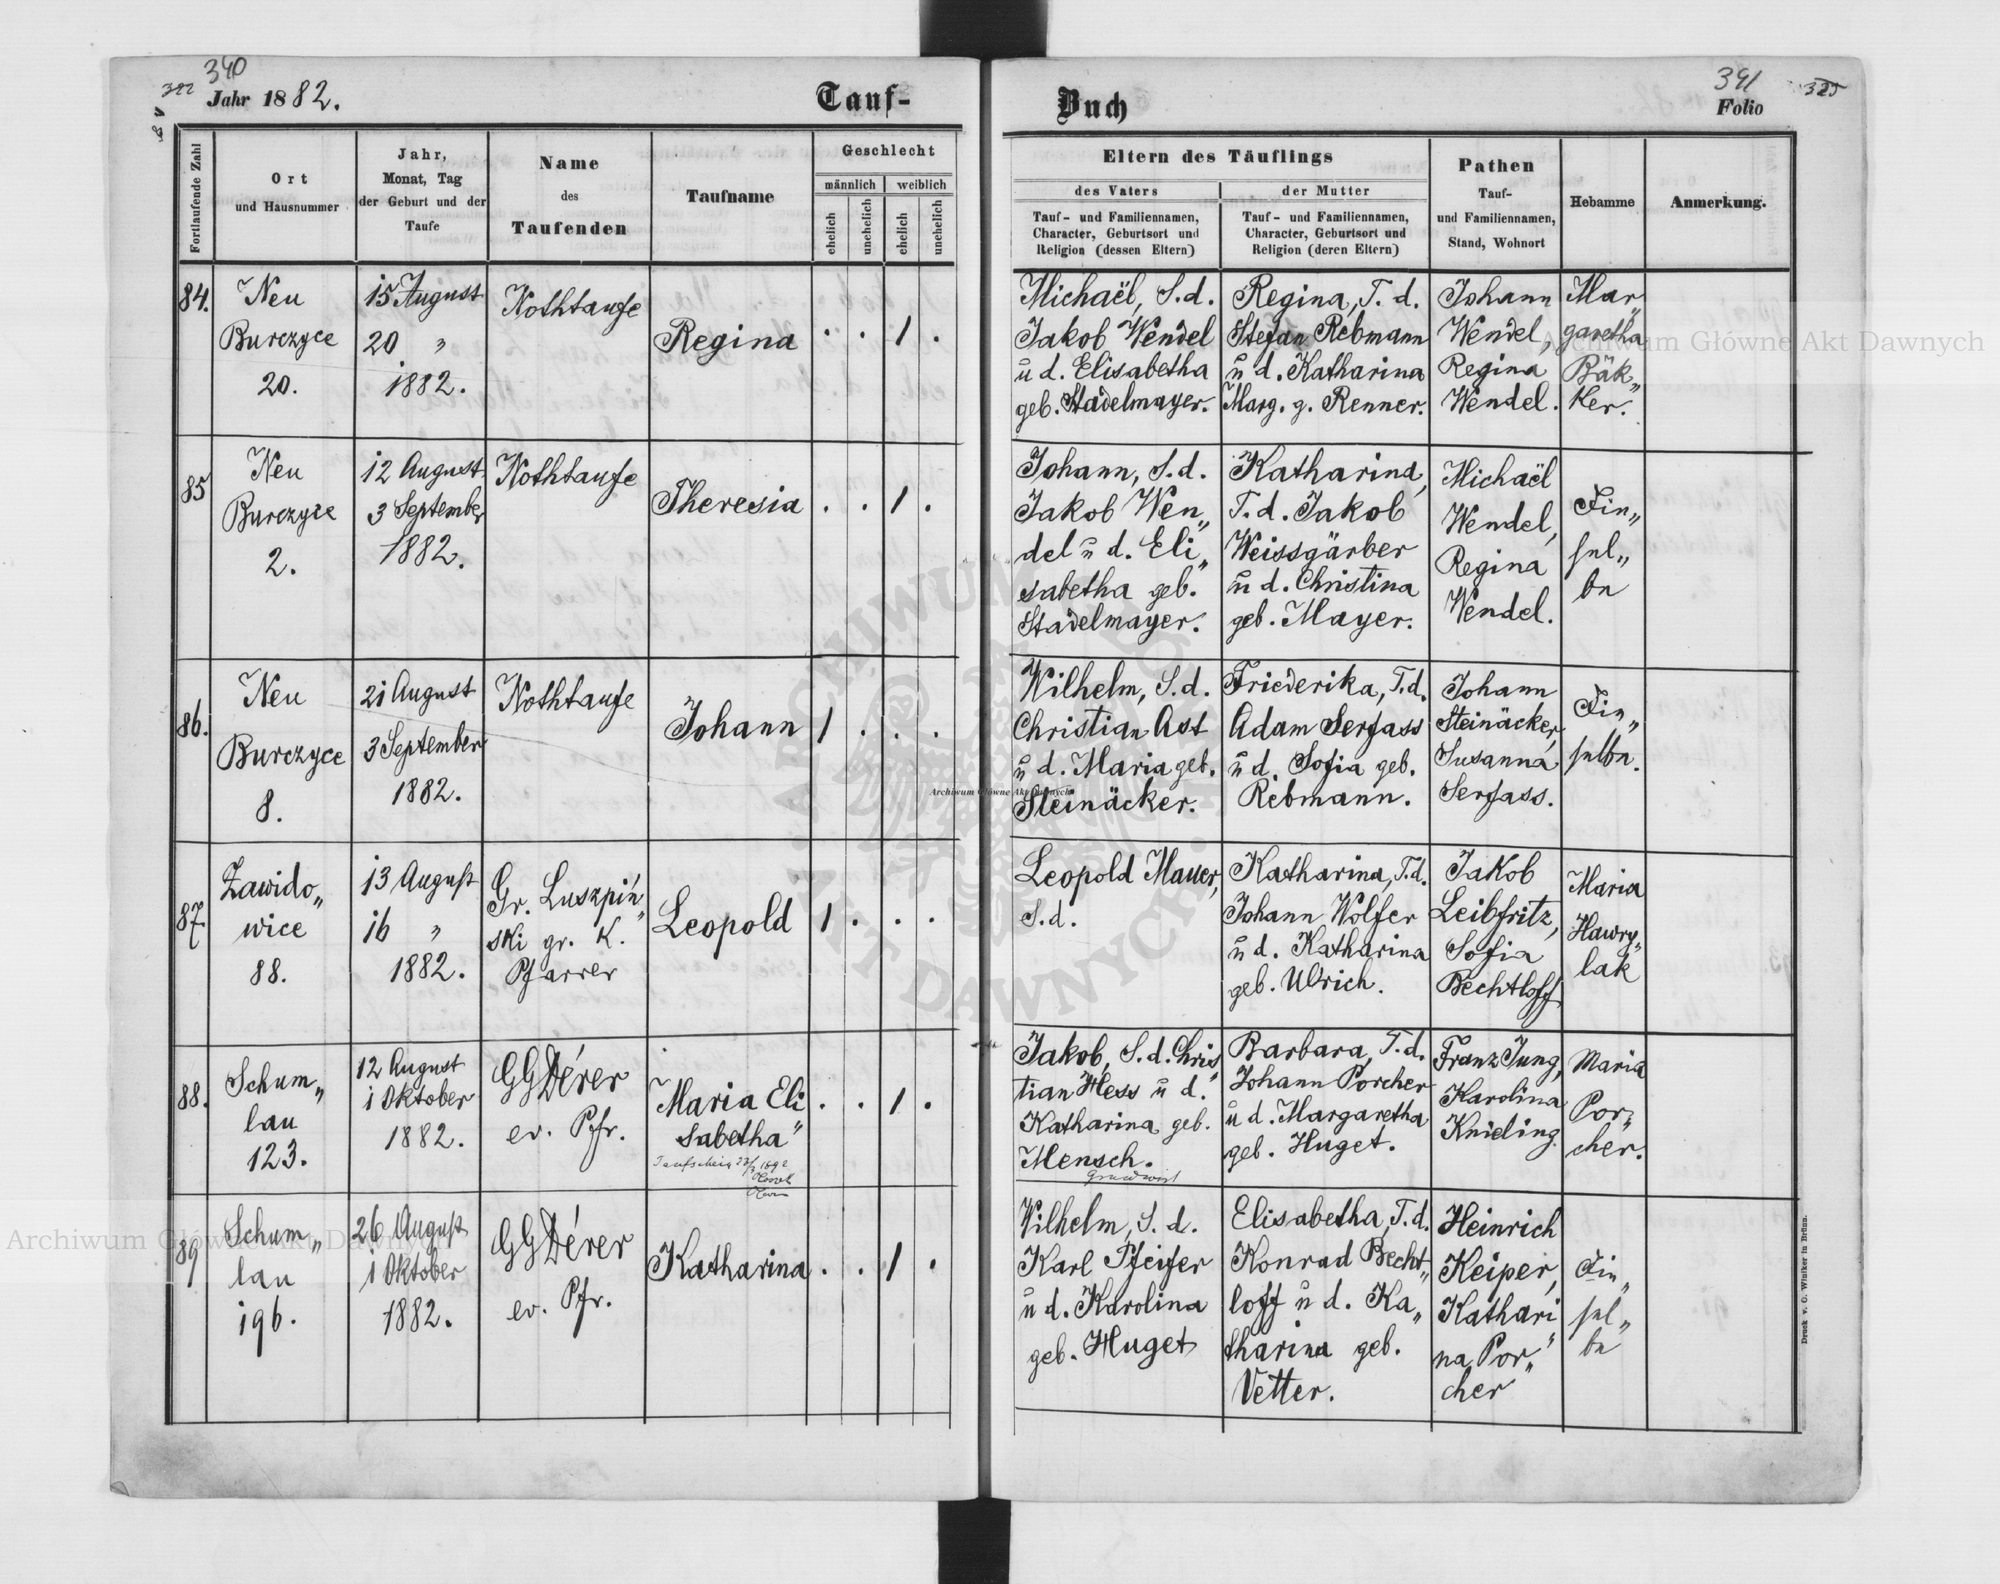 340
Jahr 1882.
Tauf-
Buch
391
Folio
325
Fortlaufende Zahl
Ort
und Hausnummer
Jahr,
Monat, Tag
der Geburt und der
Taufe
Name
des
Taufenden
Taufname
Geschlecht
männlich
weiblich
ehelich
unehelich
ehelich
unehelich
Eltern des Täuflings
des Vaters
der Mutter
Tauf- und Familiennamen,
Character, Geburtsort und
Religion (dessen Eltern)
Tauf- und Familiennamen,
Character, Geburtsort und
Religion (deren Eltern)
Pathen
Tauf-
und Familiennamen,
Stand, Wohnort
Hebamme
Anmerkung.
84.
Neu
Burczyce
20.
15 August
20 "
1882.
Nothtaufe
Regina
. . 1 .
Michaël, S.d.
Jakob Wendel
u d. Elisabetha
geb. Stadelmayer.
Regina, T. d.
Stefan Rebmann
u d. Katharina
Marg. g. Renner.
Johann
Wendel,
Regina
Wendel.
Mar
garetha
Bäk„
ker.
85
Neu
Burczyce
2.
12 August
3 September
1882.
Nothtaufe
Theresia
. . 1 .
Johann, S.d.
Jakob Wen„
del u d. Eli„
sabetha geb.
Stadelmayer.
Katharina,
T. d. Jakob
Weissgärber
u d. Christina
geb. Mayer.
Michaël
Wendel,
Regina
Wendel.
Din„
sel„
be
86.
Neu
Burczyce
8.
21 August
3 September
1882.
Nothtaufe
Johann
1 . . .
Wilhelm, S.d.
Christian Ast
u d. Maria geb.
Steinäcker.
Friederika, T.d.
Adam Serfass
u d. Sofia geb.
Rebmann.
Johann
Steinäcker,
Susanna
Serfass.
Die„
selbe.
87.
Zawido„
wice
88.
13 August
16 "
1882.
Gr. Luszpiń„
ski gr. K.
Pfarrer
Leopold
1 . . .
Leopold Mauer,
S.d.
Katharina, T.d.
Johann Wolfer
u d. Katharina
geb. Ulrich.
Jakob
Leibfritz,
Sofia
Bechtloff
Maria
Hawry„
lak
88.
Schum„
lau
123.
12 August
1 Oktober
1882.
GGDérer
ev. Pfr.
Maria Eli
sabetha"
Taufschein
. . 1 .
Jakob, S.d. Chris„
tian Hess u d.
Katharina geb.
Mensch.
Grundwirt
Barbara, T.d.
Johann Porcher
u d. Margaretha
geb. Huget.
Franz Jung,
Karolina
Knieling.
Maria
Por„
cher.
89
Schum„
lau
196.
26 August
1 Oktober
1882.
GGDérer
ev. Pfr.
Katharina
. . 1 .
Wilhelm, S.d.
Karl Pfeifer
u d. Karolina
geb. Huget
Elisabetha, T.d.
Konrad Becht„
loff u d. Ka„
tharina geb.
Vetter.
Heinrich
Keiper,
Kathari
na Por„
cher
Die„
sel„
be
Druck v. G. Winiker in Brünn.
Archiwum Główne Akt Dawnych
Archiwum Główne Akt Dawnych
Archiwum Główne Akt Dawnych
ARCHIWUM GŁÓWNE AKT DAWNYCH